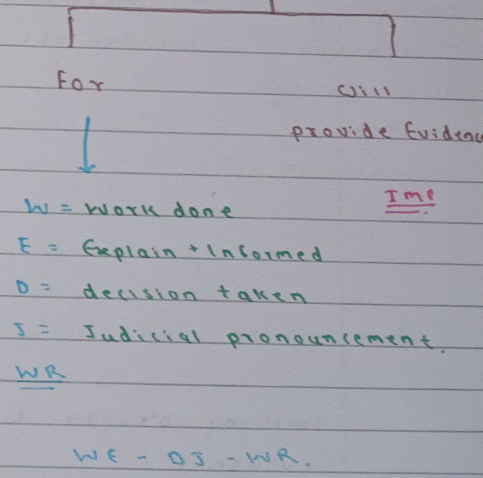 For Will
provide Evidenc
Imp
W = Work done
E = Explain + Informed
D = decision taken
J = Judicial pronouncement.
WR
WE - DJ - WR.